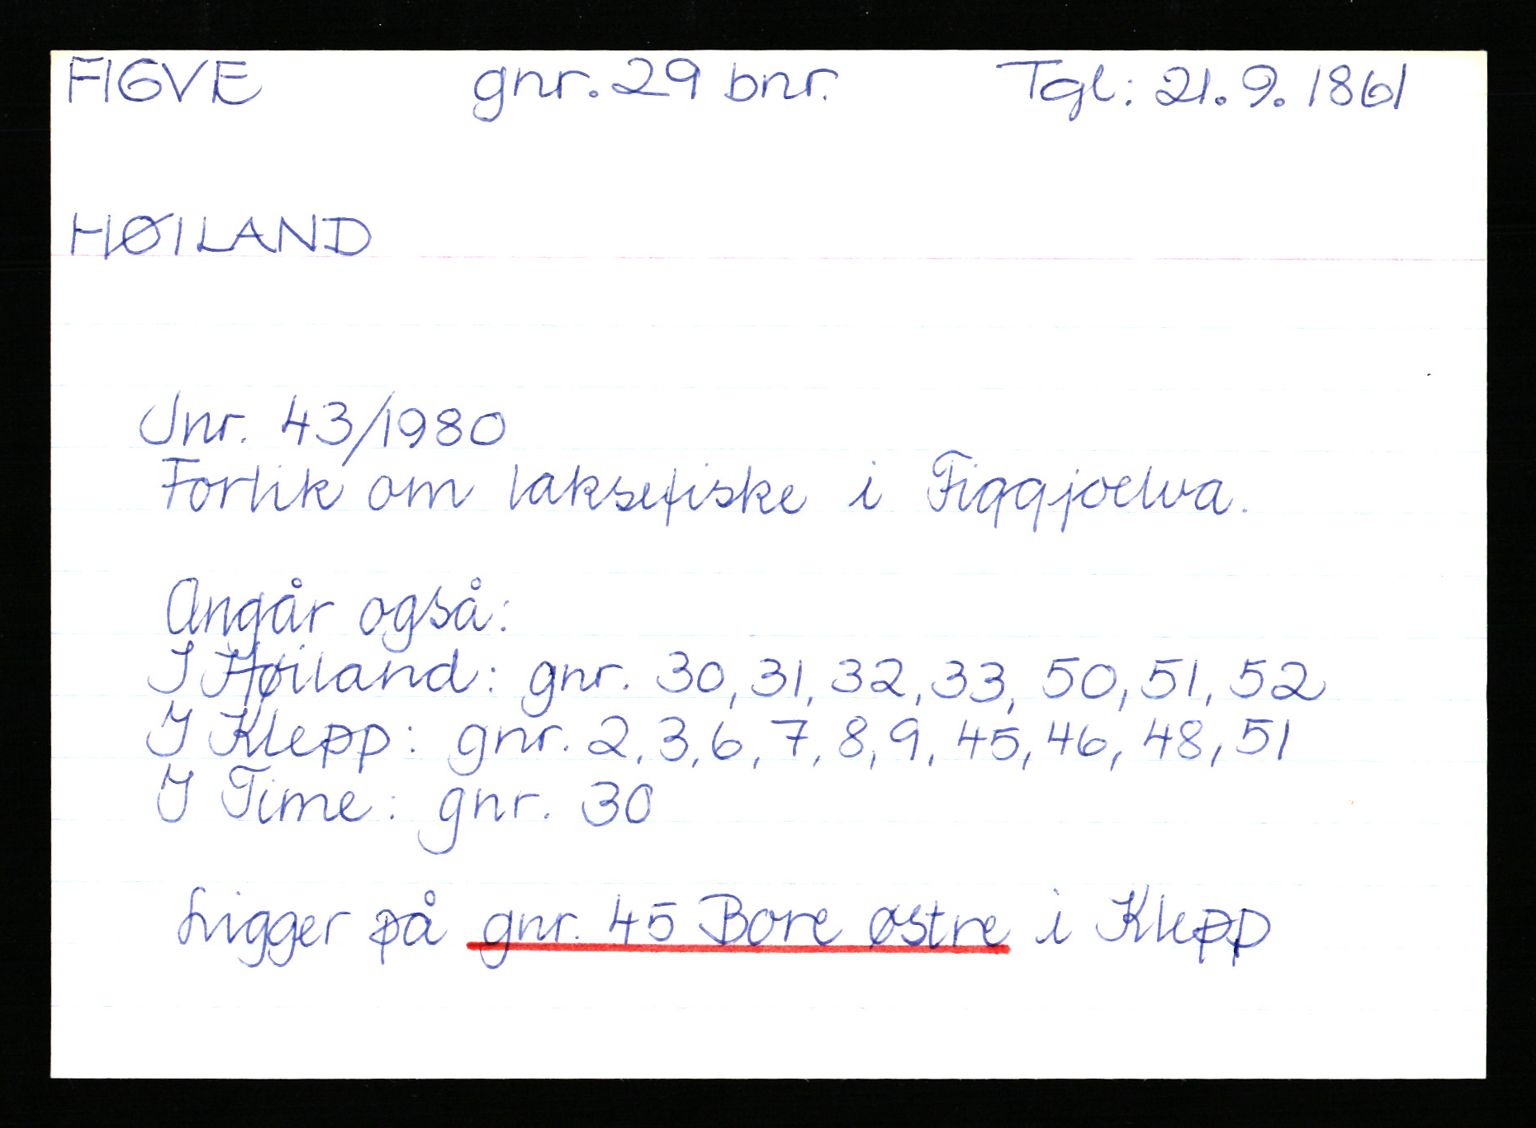 FIGVE gnr. 29 bnr. Tgl: 21. 9. 1861
HØILAND
Jnr. 43/1980
Forlik om laksefiske i Figgjoelva.
Angår også:
I Høiland: gnr. 30, 31, 32, 33, 50, 51, 52
I Klepp: gnr. 2, 3, 6, 7, 8, 9, 45, 46, 48, 51
I Time: gnr. 30
Ligger på gnr. 45 Bore østre i Klepp